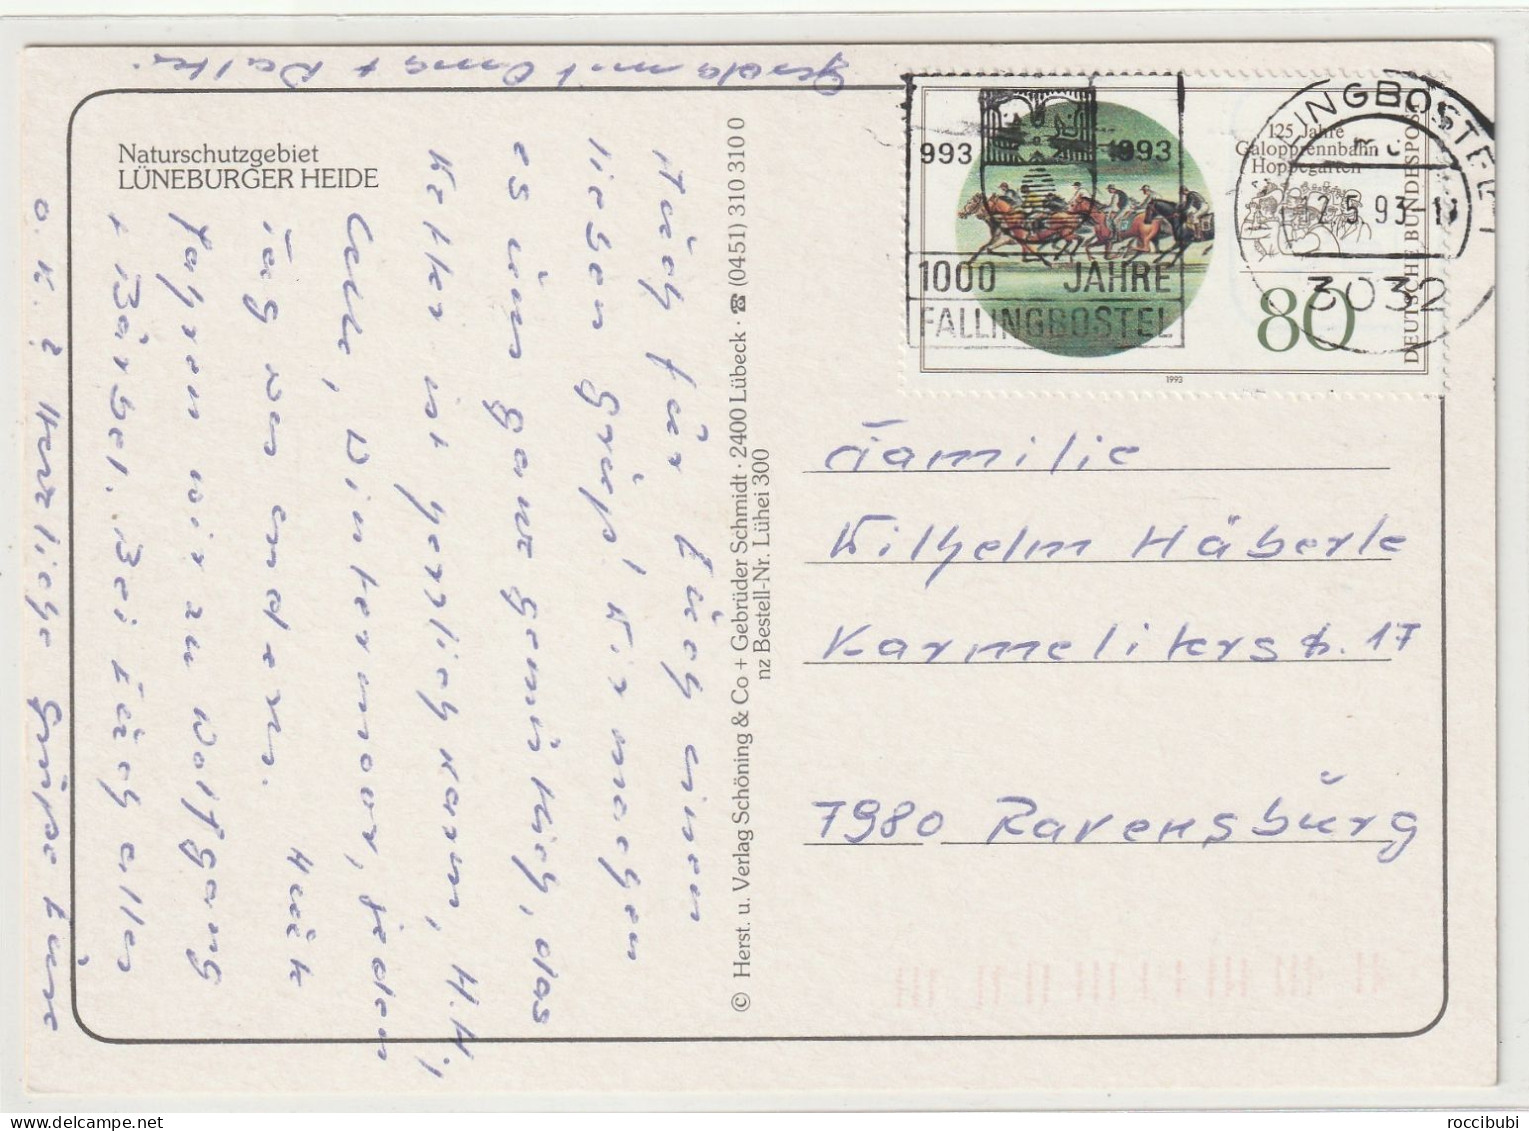 Gerda mit Oma + Walter
Naturschutzgebiet
LÜNEBURGER HEIDE
Auch für Euch einen
lieben Gruß! Wir machen
es uns ganz gemütlich, das
Wetter ist herrlich warm, H.H,
Celle, Wintermoor, jeden
Tag wo anders. Heut
fahren wir zu Wolfgang
+ Bärbel. Bei Euch alles
o.k.? Herzliche Grüße Eure
© Herst. u. Verlag Schöning & Co + Gebrüder Schmidt · 2400 Lübeck · ☎ (0451) 310 310 0
nz Bestell-Nr. Lühei 300
993 1993
1000 JAHRE
FALLINGBOSTEL
125 Jahre
Galopprennbahn
Hoppegarten
80
DEUTSCHE BUNDESPOST
1993
LINGBOSTEL 1
12.5.93-1
3032
Familie
Wilhelm Häberle
Karmeliterstr. 17
7980 Ravensburg
roccibubi